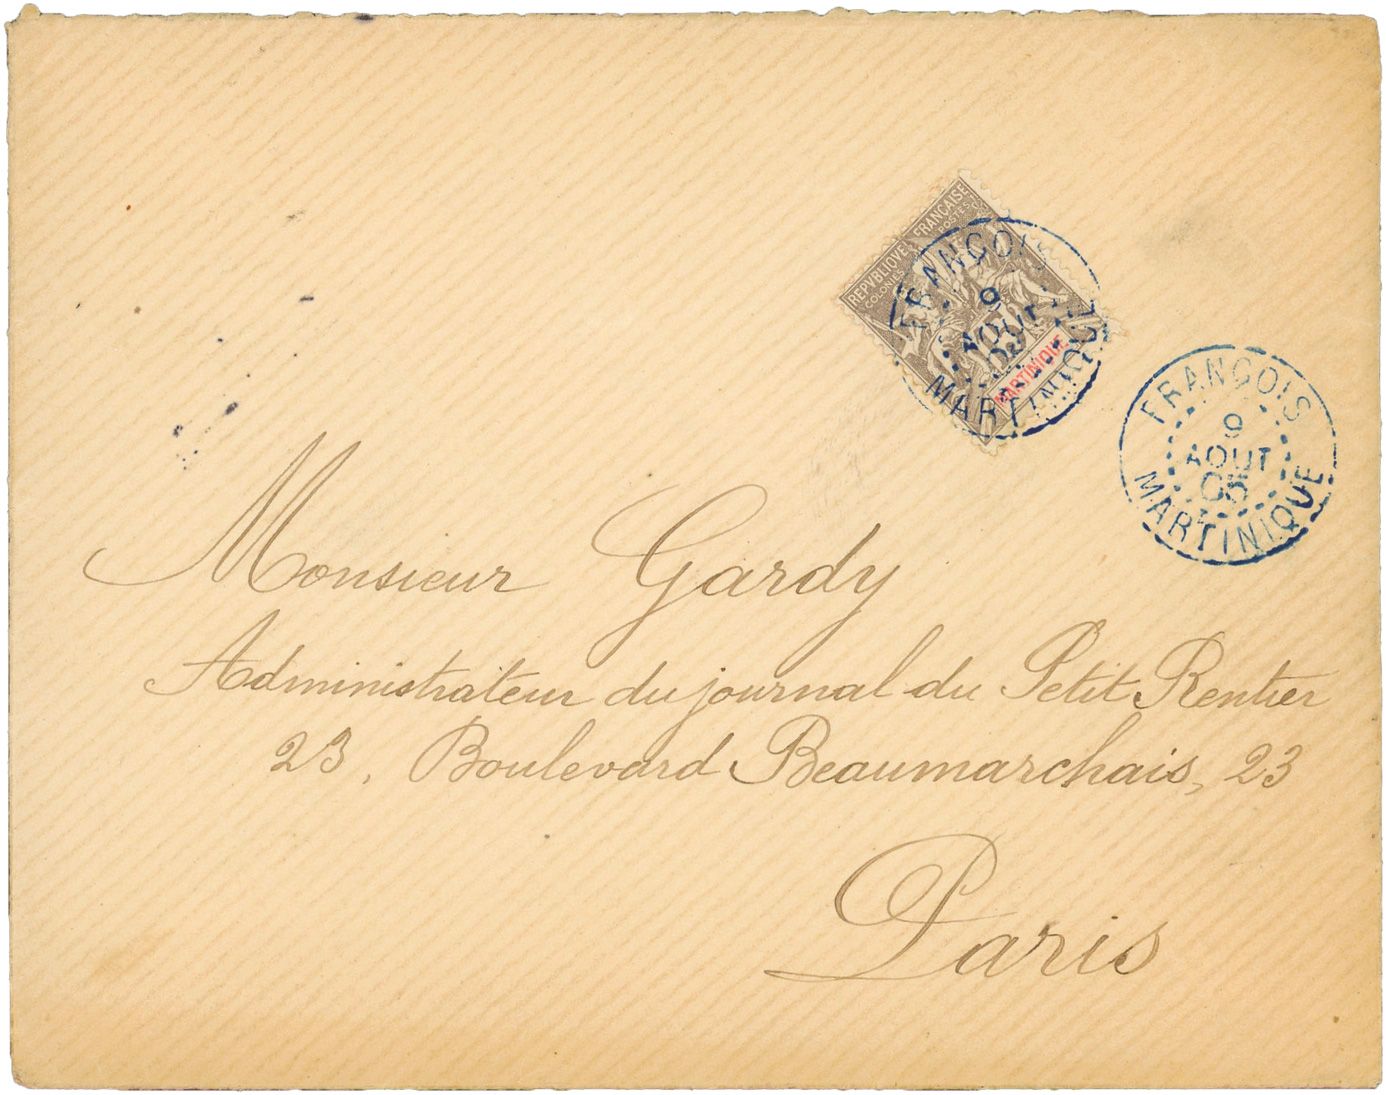 REPVBLIQUE FRANÇAISE
COLONIES POSTES
MARTINIQUE
FRANÇOIS
9
AOUT
05
MARTINIQUE
FRANÇOIS
9
AOUT
05
MARTINIQUE
Monsieur Gardy
Administrateur du journal du Petit Rentier
23, Boulevard Beaumarchais, 23
Paris